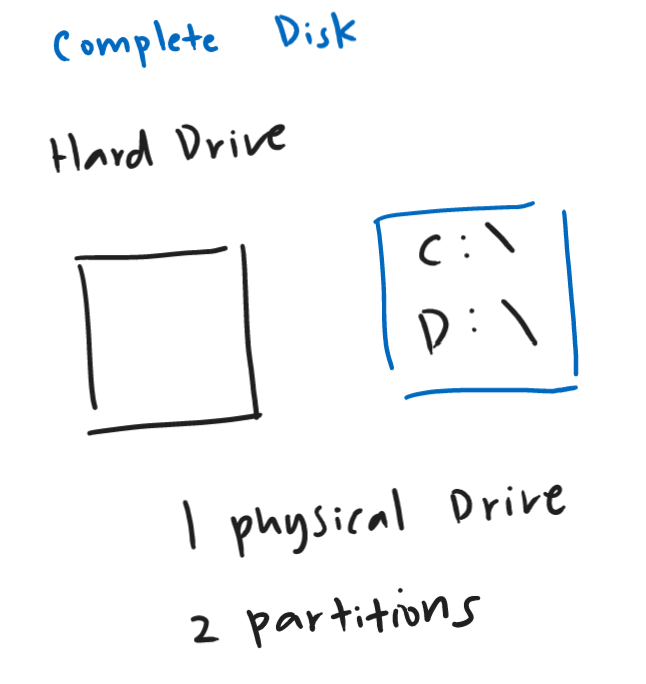 Complete Disk
Hard Drive
C:\
D:\
1 physical Drive
2 partitions